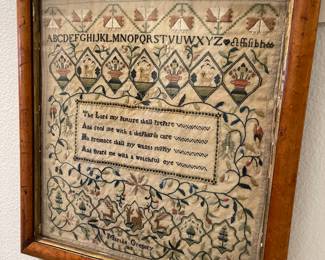 ABCDEFGHIJKLMNOPQRSTVUWXYZ
The Lord my pasture shall prepare
And feed me with a shepherds care
His presence shall my wants supply
And guard me with a watchful eye
Gregory